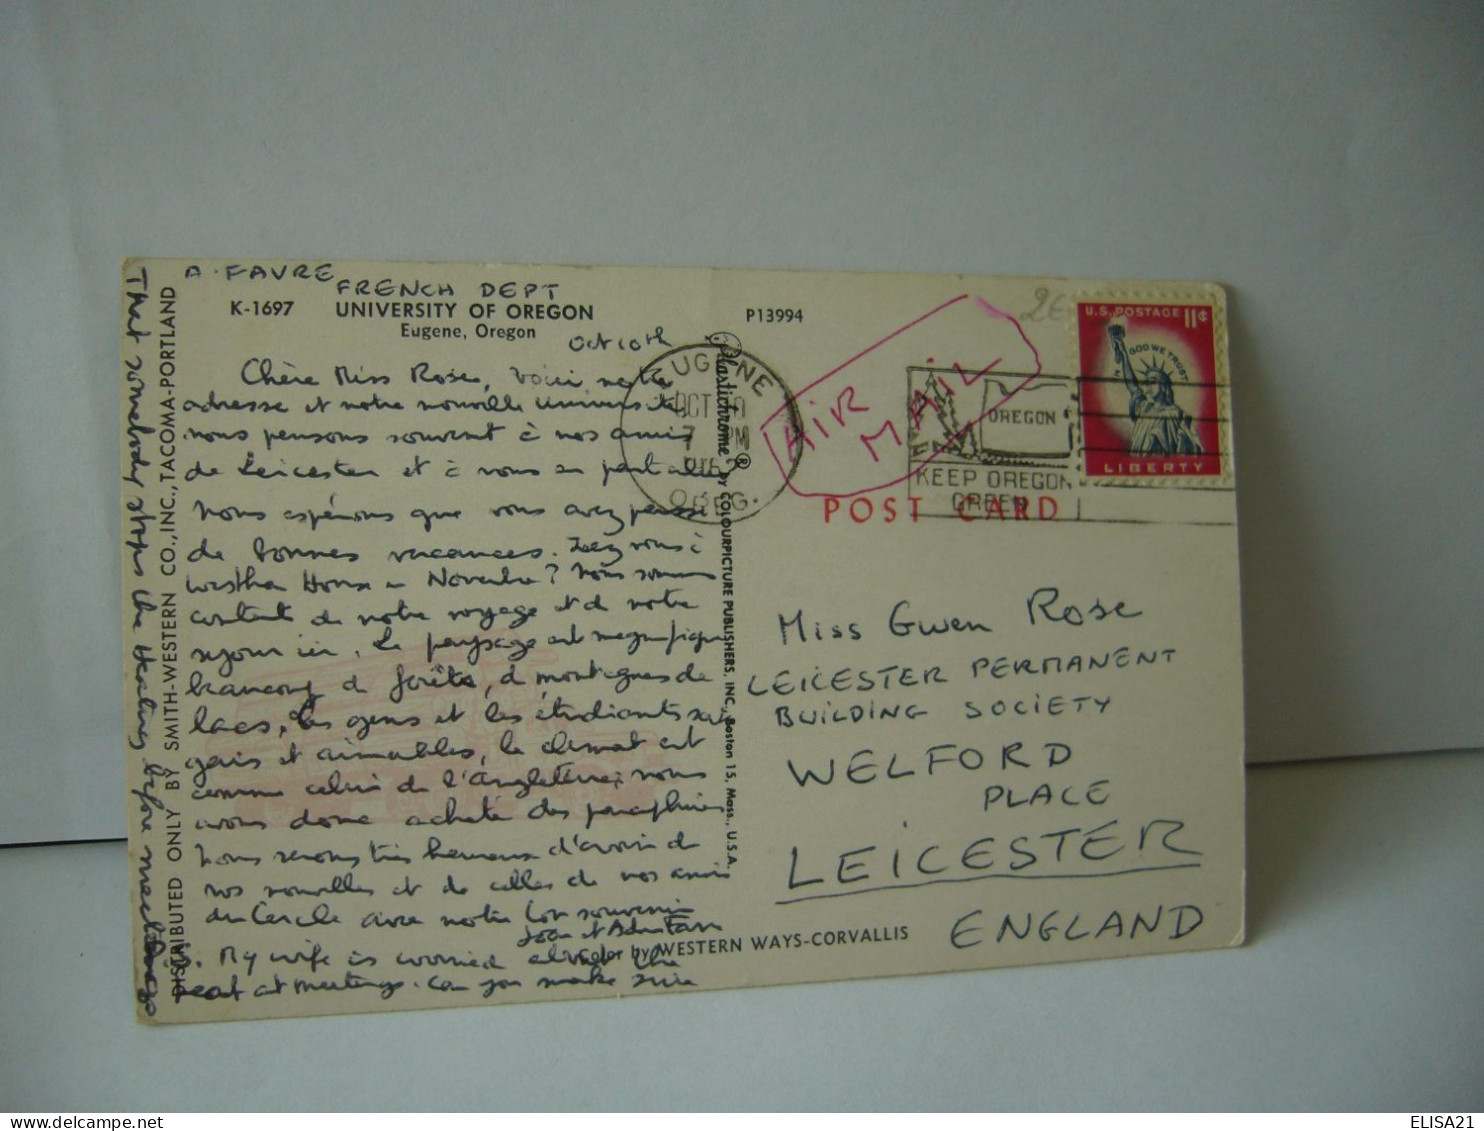 A. FAVRE
FRENCH DEPT
K-1697 UNIVERSITY OF OREGON
Eugene, Oregon
P13994
Oct 10th
Chère Miss Rose, voici notre
adresse et notre nouvelle université,
nous pensons souvent à nos amis
de Leicester et à vous en particulier
nous espérons que vous avez passé
de bonnes vacances. Irez vous à
House en Novembre? Nous sommes
contents de notre voyage et de notre
séjour ici. Le paysage est magnifique
beaucoup de forêts, de montagnes de
lacs, les gens et les étudiants sont
gais et aimables, le climat est
comme celui de l'Angleterre, nous
avons donc acheté des parapluies
Nous serons très heureux d'avoir de
vos nouvelles et de celles de nos amis
du Cercle avec notre bon souvenir
et Favre
My wife is worried about the
seat at meetings. Can you make sure
That somebody stops the Heating before meetings
DISTRIBUTED ONLY BY SMITH-WESTERN CO., INC., TACOMA-PORTLAND
Plastichrome® by COLOURPICTURE PUBLISHERS, INC., Boston 15, Mass., U.S.A.
Color by WESTERN WAYS-CORVALLIS
EUGENE
OCT 10
7 PM
OREG.
AIR
MAIL
OREGON
KEEP OREGON
GREEN
2E
U.S. POSTAGE 11¢
IN GOD WE TRUST
LIBERTY
POST CARD
Miss Gwen Rose
LEICESTER PERMANENT
BUILDING SOCIETY
WELFORD
PLACE
LEICESTER
ENGLAND
ELISA21